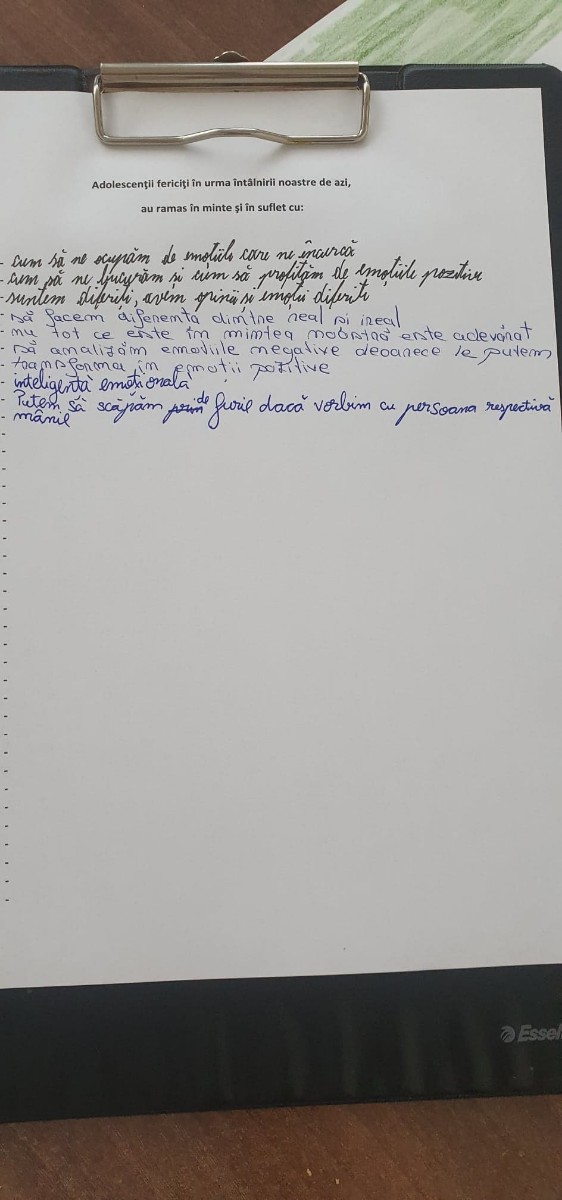 Adolescenţii fericiţi în urma întâlnirii noastre de azi,
au ramas în minte şi în suflet cu:
- cum să ne ocupăm de emoțiile care ne încurcă
- cum să ne bucurăm și cum să profităm de emoțiile pozitive
- suntem diferiți, avem opinii si emotii diferiti
- să facem diferenta dintre real si ireal
- nu tot ce este în mintea noastră este adevărat
- să analizăm emotiile negative deoarece le putem
- transforma in emotii pozitive
- inteligență emoțională
- Putem să scăpăm de furie dacă vorbim cu persoana respectivă
- mânil
Essel